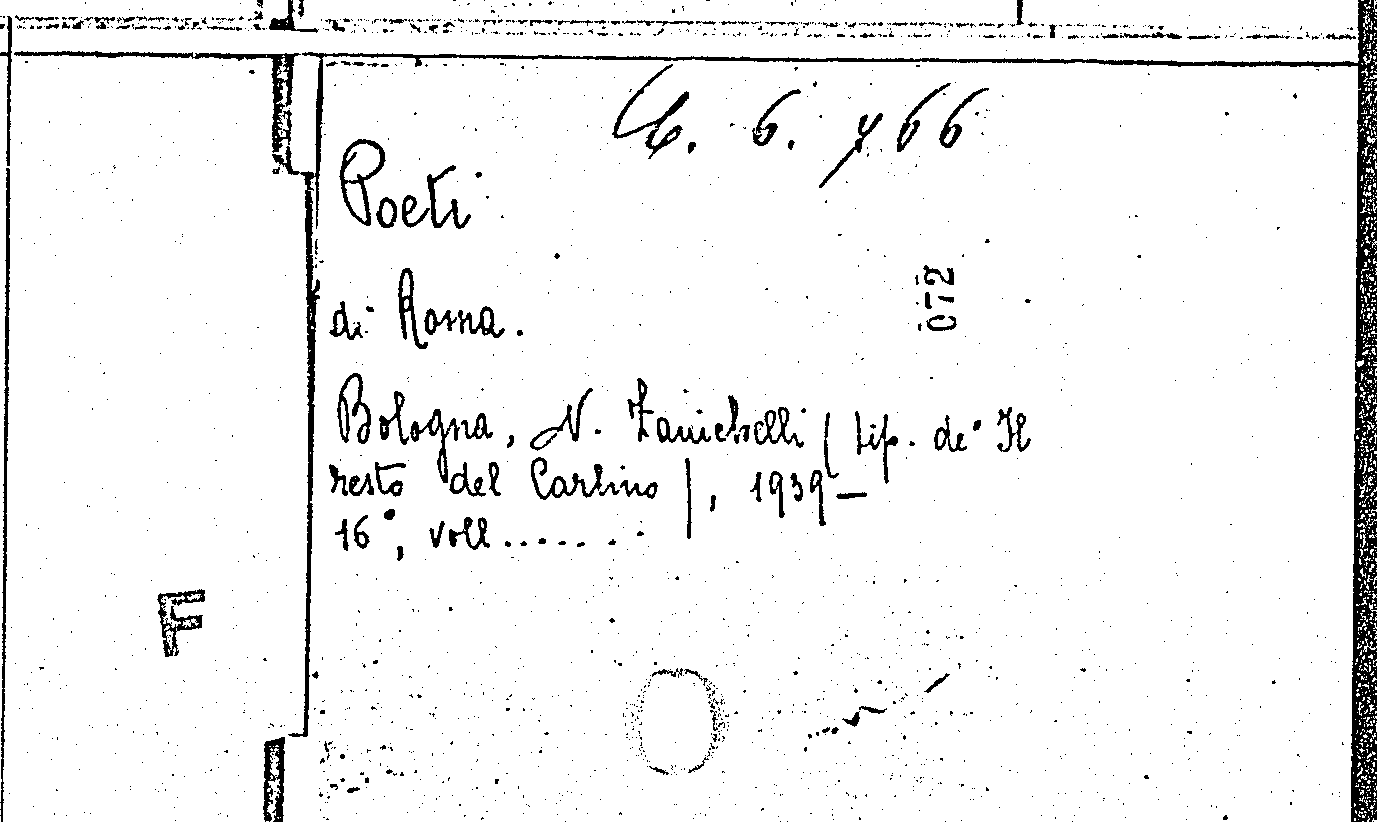 6. 766
Poeti
072
di Roma.
Bologna, N. Zanichelli ( tip. de' Il
resto del Carlino ), 1939 —
16°, voll.......
F